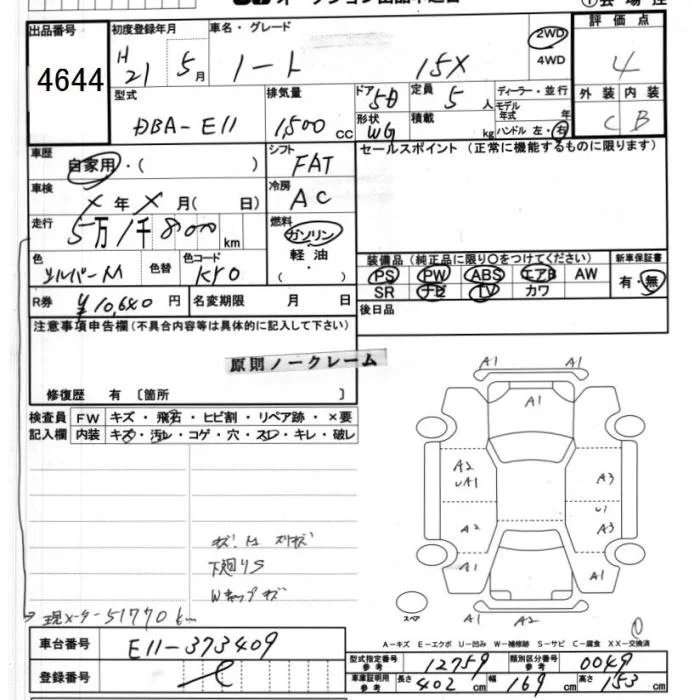 出品番号
4644
初度登録年月
H 21 5月
車名・グレード
ノート 15X
2WD
4WD
評価点
4
外装 内装
C B
型式
DBA-E11
排気量
1,500 cc
ドア 5D
定員 5人
形状 WG
積載 kg
ディーラー・並行
モデル年式 年
ハンドル 左・右
車歴
自家用・( )
シフト
FAT
セールスポイント (正常に機能するものに限ります)
車検
X年X月( 日)
冷房
AC
走行
5万1千800 km
燃料
ガソリン
軽油
( )
色
シルバーM
色替
色コード
KY0
装備品 (純正品に限り○をつけてください)
PS PW ABS エアB AW
SR ナビ TV カワ
新車保証書
有・無
R券 ¥10,640円
名変期限 月 日
後日品
注意事項申告欄(不具合内容等は具体的に記入して下さい)
原則ノークレーム
修復歴 有 〔箇所 〕
検査員記入欄
FW キズ・飛石・ヒビ割・リペア跡・×要
内装 キズ・汚レ・コゲ・穴・スレ・キレ・破レ
下廻りS
Wキャップキズ
現メーター51770
A1 A1
A1
A1 A1
A2
UA1
A3
U1
A2
A3
A1 A1
スペア
A1 A2
A-キズ E-エクボ U-凹み W-補修跡 S-サビ C-腐食 XX-交換済
車台番号
E11-373409
登録番号
型式指定番号 参考 12759
類別区分番号 参考 0049
車庫証明用 参考 長さ 402 cm 幅 169 cm 高さ 153 cm